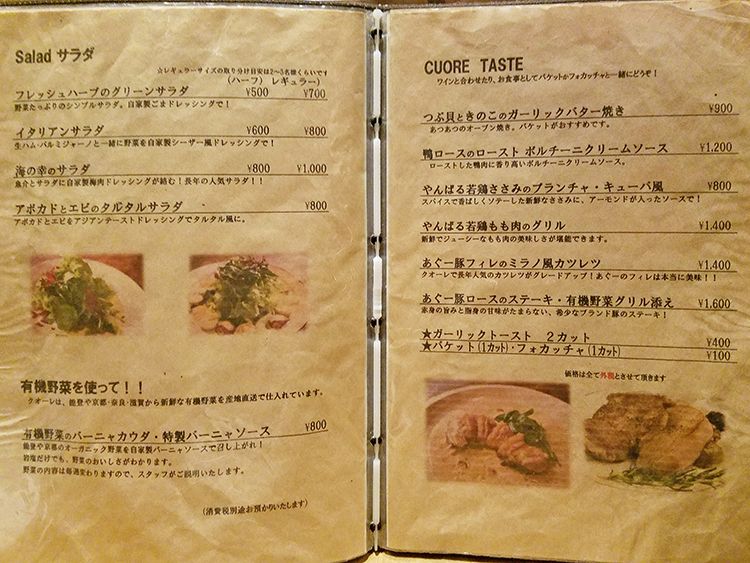 Salad サラダ
☆レギュラーサイズの取り分け目安は2〜3名様くらいです
(ハーフ) レギュラー)
フレッシュハーブのグリーンサラダ ¥500 ¥700
野菜たっぷりのシンプルサラダ。自家製ごまドレッシングで！
イタリアンサラダ ¥600 ¥800
生ハム・パルミジャーノと一緒に野菜を自家製シーザー風ドレッシングで！
海の幸のサラダ ¥800 ¥1,000
魚介とサラダに自家製梅肉ドレッシングが絡む！長年の人気サラダ！
アボカドとエビのタルタルサラダ ¥800
アボカドとエビをアジアンテーストドレッシングでタルタル風に。
有機野菜を使って！！
クオーレは、能登や京都・奈良・滋賀から新鮮な有機野菜を産地直送で仕入れています。
有機野菜のバーニャカウダ・特製バーニャソース ¥800
能登や京都のオーガニック野菜を自家製バーニャソースで召し上がれ！
岩塩だけでも、野菜のおいしさがわかります。
野菜の内容は毎週変わりますので、スタッフがご説明いたします。
(消費税別途お預かりいたします)
CUORE TASTE
ワインと合わせたり、お食事としてバケットかフォカッチャと一緒にどうぞ！
つぶ貝ときのこのガーリックバター焼き ¥900
あつあつのオーブン焼き。バケットがおすすめです。
鴨ロースのロースト ポルチーニクリームソース ¥1,200
ローストした鴨肉に香り高いポルチーニクリームソース。
やんばる若鶏ささみのプランチャ・キューバ風 ¥800
スパイスで香ばしくソテーした新鮮なささみに、アーモンドが入ったソースで！
やんばる若鶏もも肉のグリル ¥1,400
新鮮でジューシーなもも肉の美味しさが堪能できます。
あぐー豚フィレのミラノ風カツレツ ¥1,400
クオーレで長年人気のカツレツがグレードアップ！あぐーのフィレは本当に美味！！
あぐー豚ロースのステーキ・有機野菜グリル添え ¥1,600
赤身の旨みと脂身の甘味がたまらない、希少なブランド豚のステーキ！
★ガーリックトースト 2カット ¥400
★バケット(1カット)・フォカッチャ(1カット) ¥100
価格は全て外税とさせて頂きます